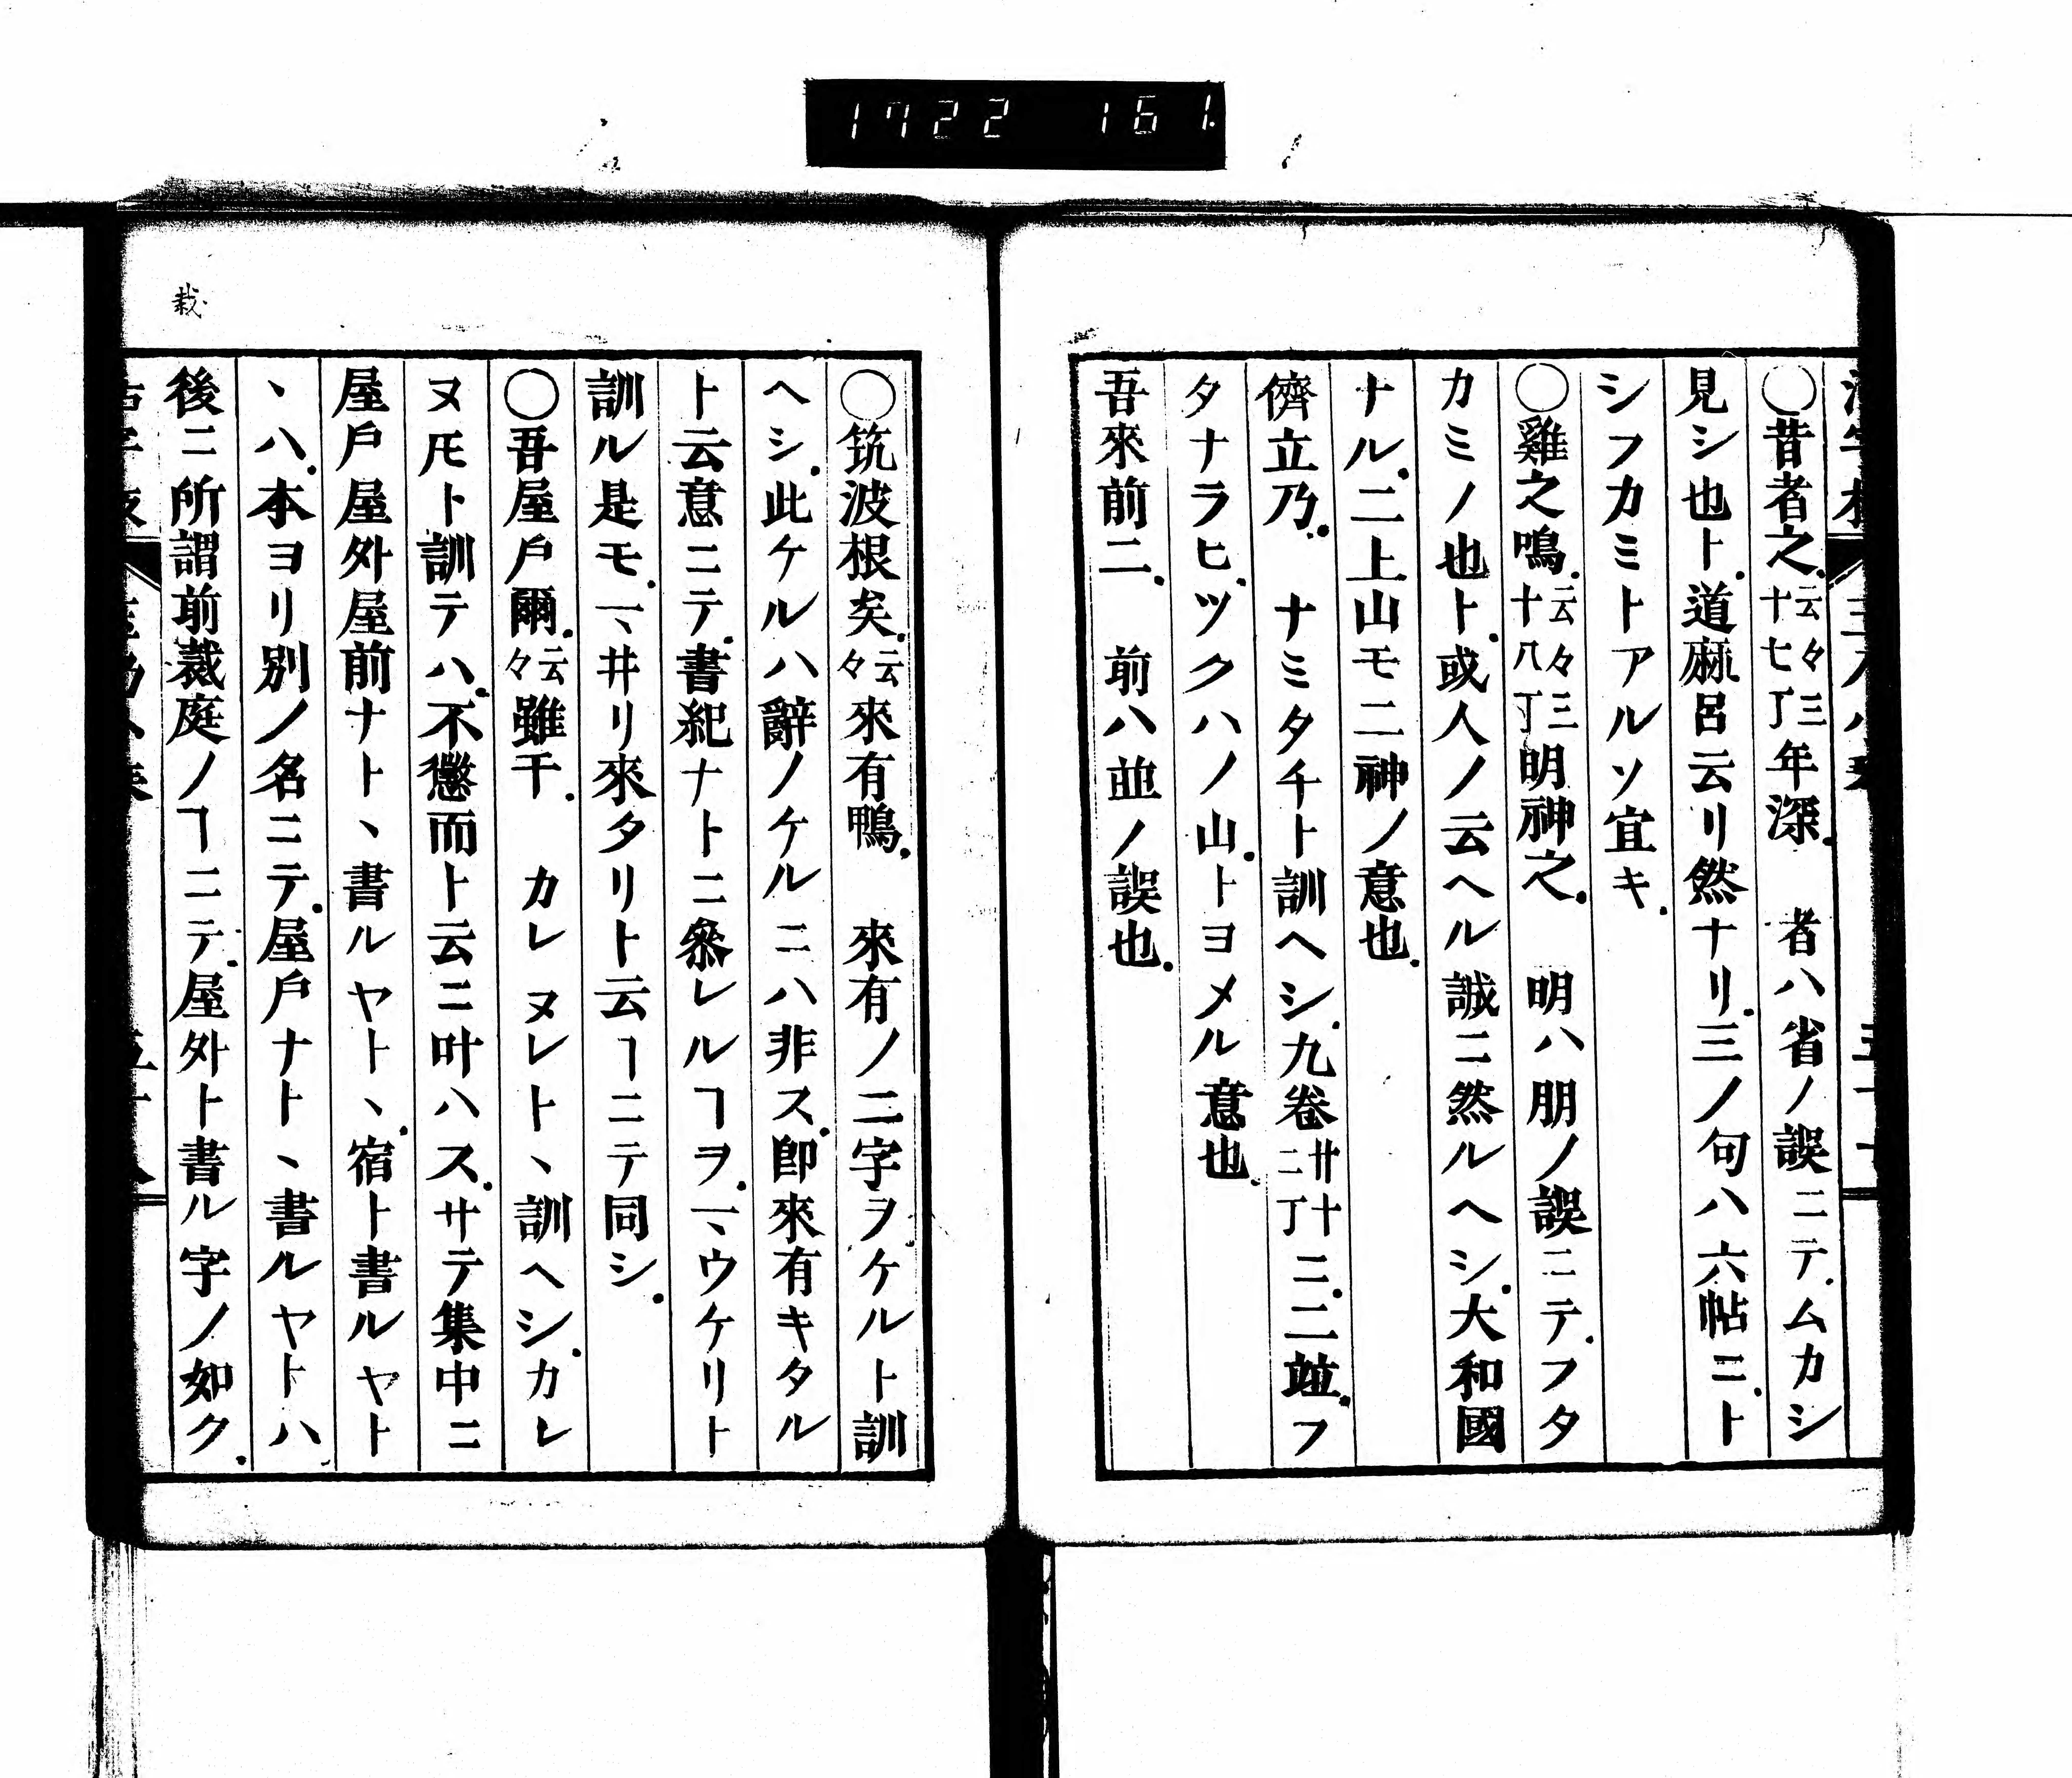 1722 161
◯昔者之云々三十七丁年深　者ハ省ノ誤ニテムカシ
見シ也ト道麻呂云リ然ナリ三ノ句ハ六帖ニト
シフカミトアルソ宜キ
◯雞之鳴云々三十八丁明神之　明ハ朋ノ誤ニテフタ
カミノ也ト或人ノ云ヘル誠ニ然ルヘシ大和國
ナル二上山モ二神ノ意也
儕立乃　ナミタチト訓ヘシ九卷廿二十丁ニ二並フ
タナラヒツクハノ山トヨメル意也
吾來前二　前ハ並ノ誤也
◯筑波根矣云々來有鴨　來有ノ二字ヲケルト訓
ヘシ此ケルハ辭ノケルニハ非ス卽來有キタル
ト云意ニテ書紀ナトニ叅レルヿヲマウケリト
訓ル是モマヰリ來タリト云ヿニテ同シ
◯吾屋戶爾云々雖干　カレヌレト、訓ヘシカレ
ヌ𪜈ト訓テハ不懲而ト云ニ叶ハスサテ集中ニ
屋戶屋外屋前ナト、書ルヤト、宿ト書ルヤト
、ハ本ヨリ別ノ名ニテ屋戶ナト、書ルヤトハ
後ニ所謂前裁庭ノヿニテ屋外ト書ル字ノ如ク
栽